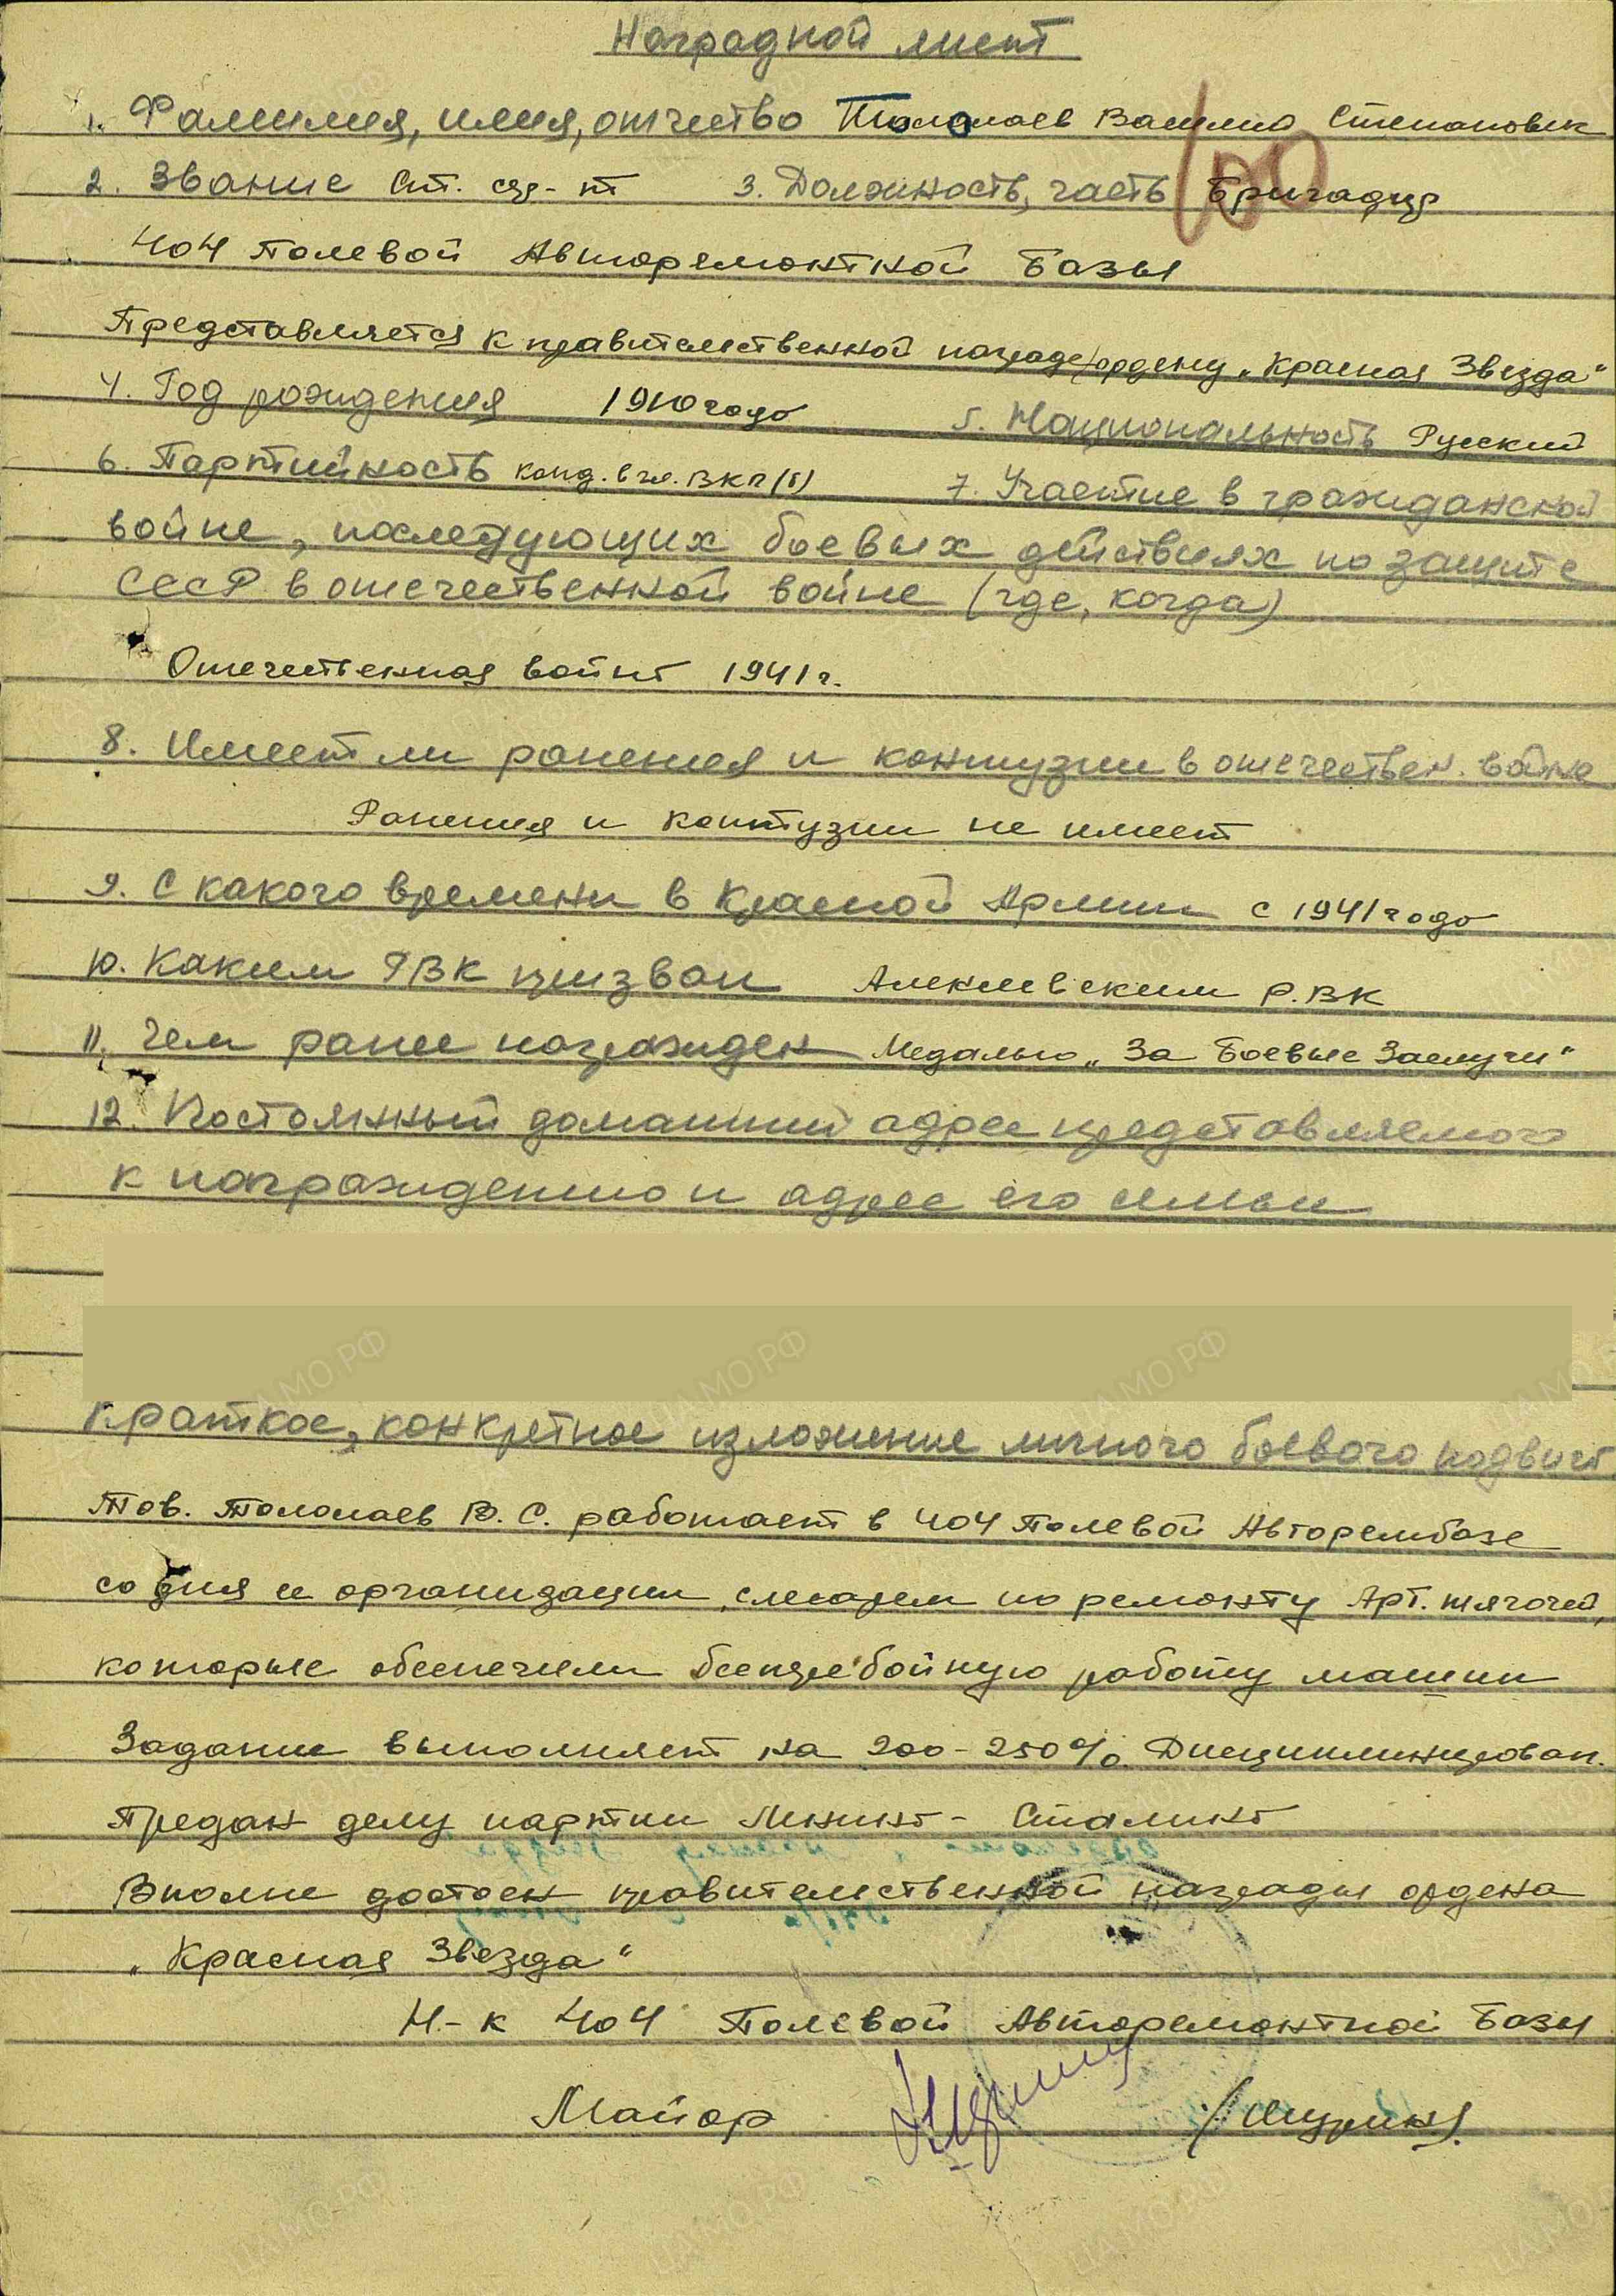 Наградной лист
1. Фамилия, имя, отчество Тололаев Василий Степанович
2. Звание Ст. сер-нт 3. Должность, часть Бригадир
404 Полевой Авторемонтной Базы
Представляется к правительственной награде/ордену „Красная Звезда"
4. Год рождения 1910 года 5. Национальность Русский
6. Партийность канд. в чл. ВКП(б) 7. Участие в гражданской
войне, последующих боевых действиях по защите
СССР в отечественной войне (где, когда)
Отечественная война 1941 г.
8. Имеет ли ранения и контузии в отечествен. войне
Ранения и контузии не имеет
9. С какого времени в Красной Армии с 1941 года
10. Каким РВК призван Алексеевским Р.ВК
11. Чем ранее награжден Медалью „За Боевые Заслуги"
12. Постоянный домашний адрес представляемого
к награждению и адрес его семьи
Краткое, конкретное изложение личного боевого подвига
Тов. Тололаев В. С. работает в 404 Полевой Авторембазе
со дня ее организации, слесарем по ремонту Арт. тягочей,
которые обеспечили бесперебойную работу машин
Задание выполняет на 200-250%. Дисциплинирован.
Предан делу партии Ленина-Сталина
Вполне достоен правительственной награды ордена
„Красная Звезда"
Н-к 404 Полевой Авторемонтной Базы
Майор